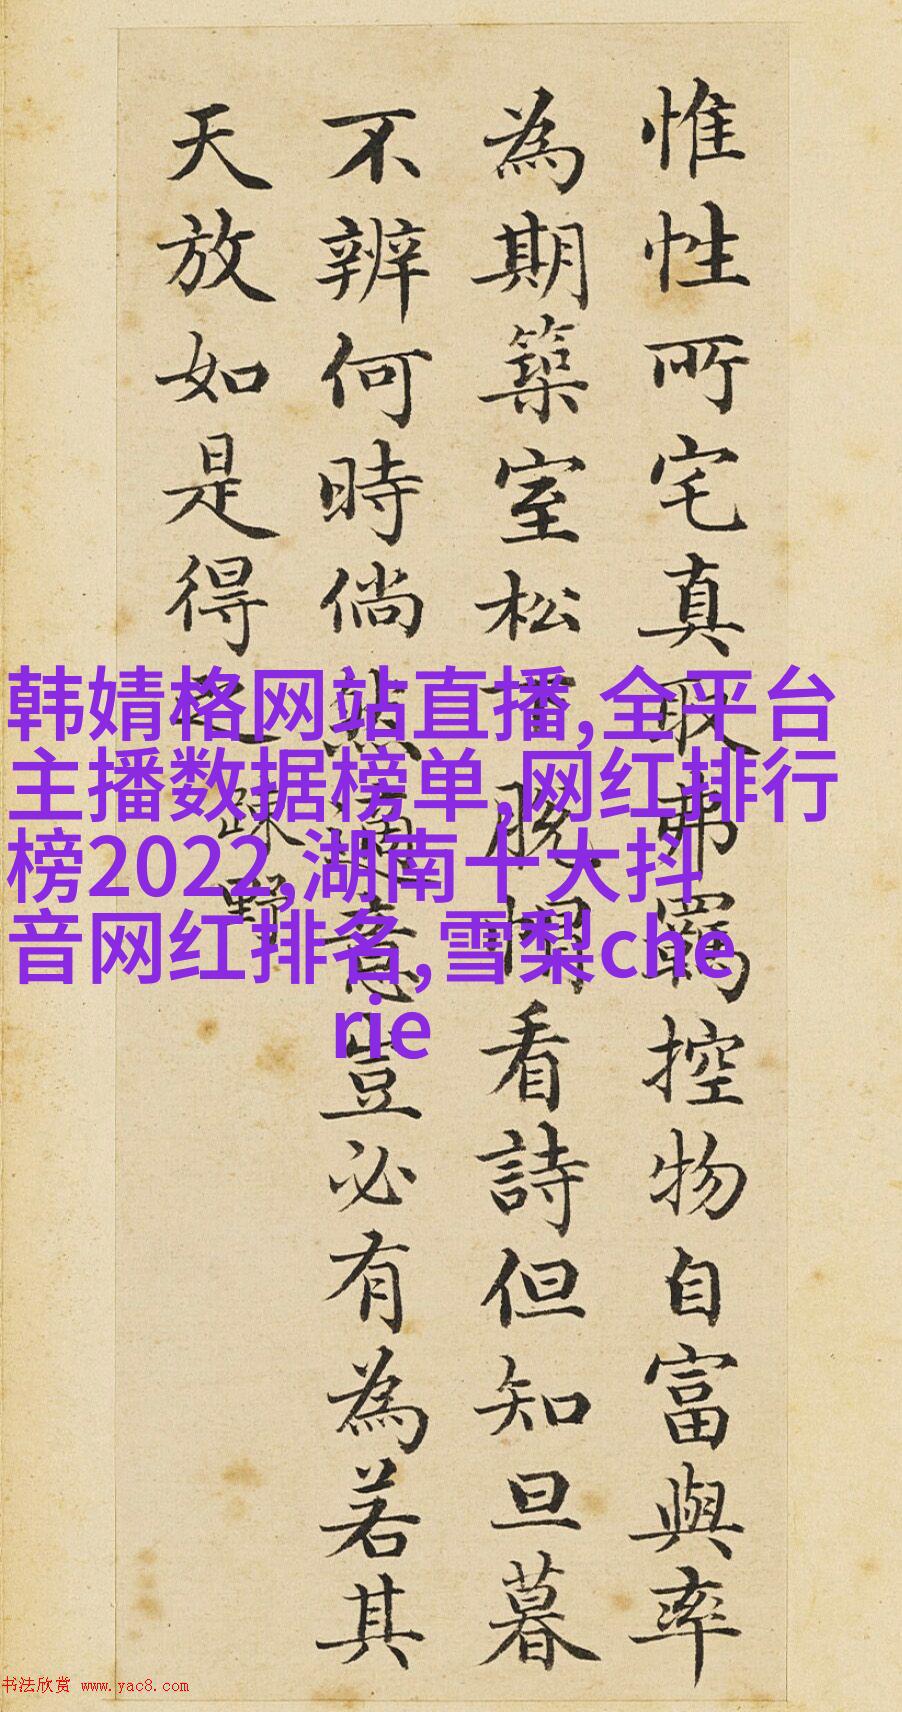 惟性所宅真取弗羈控物自富與率
為期築室松下脫帽看詩但知旦暮
不辨何時倘然適意豈必有為若其
天放如是得之
疎野
韩婧格网站直播,全平台
主播数据榜单,网红排行
榜2022,湖南十大抖
音网红排名,雪梨che
rie
书法欣赏 www.yac8.com